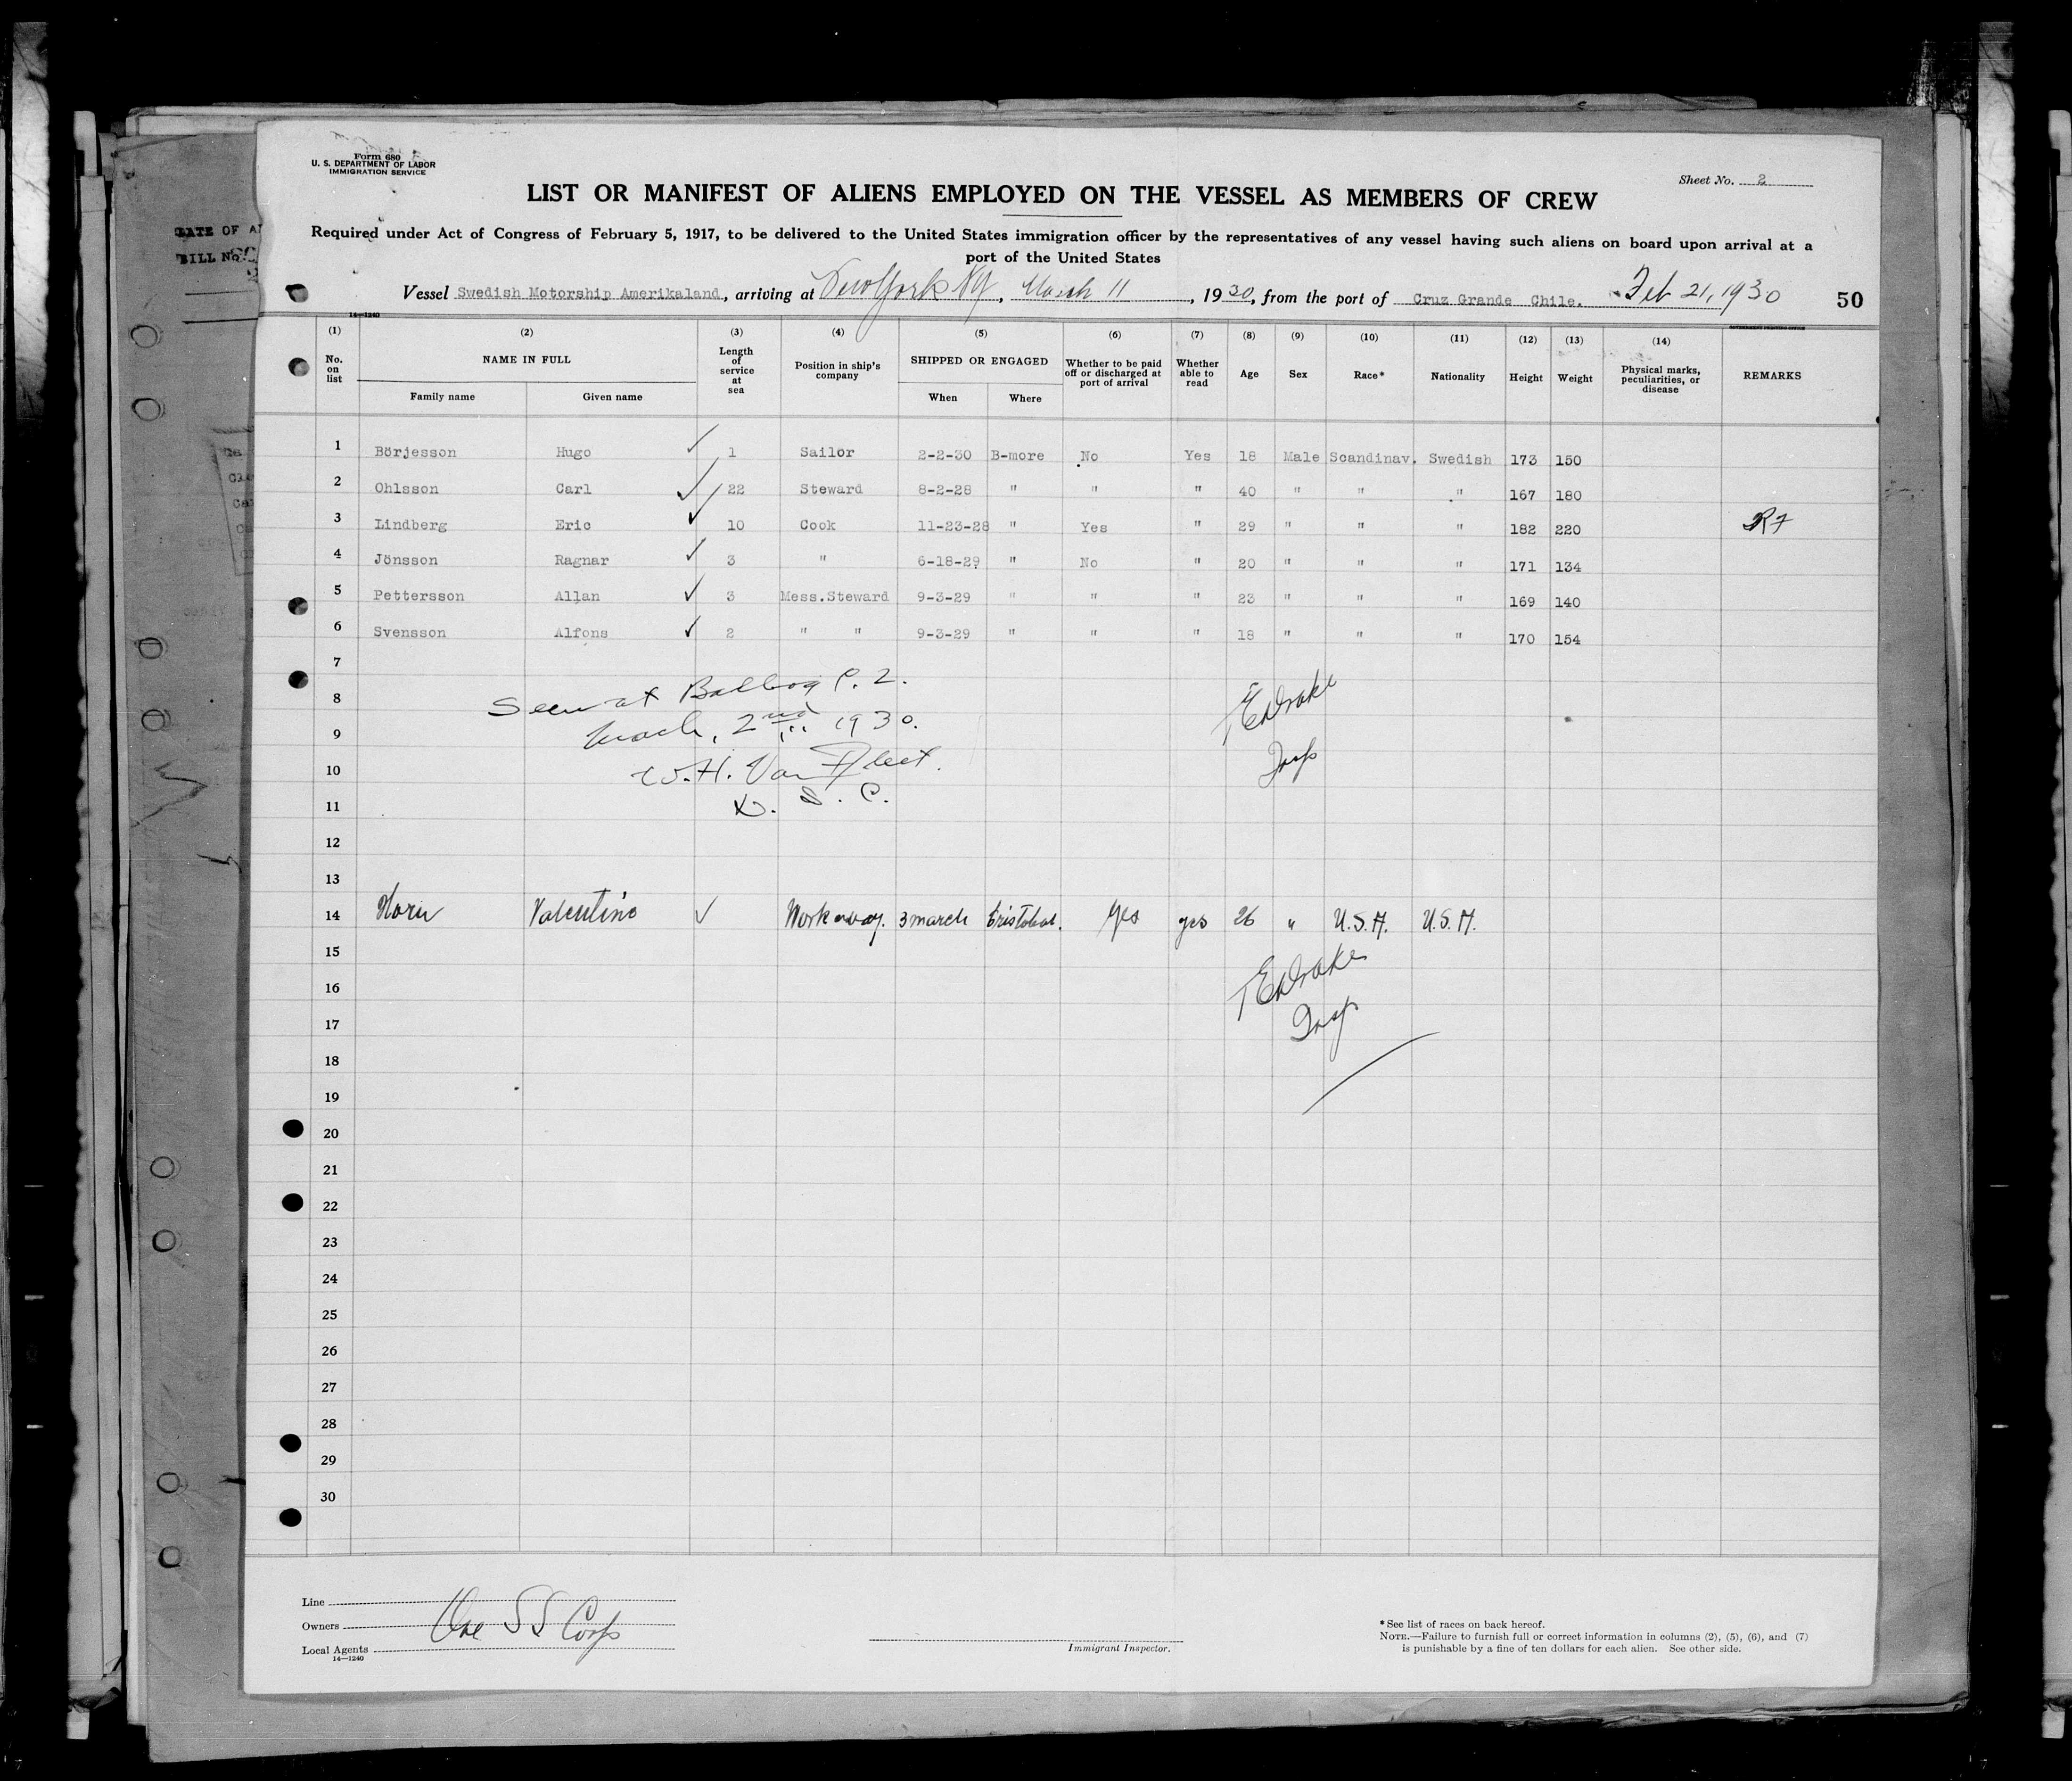 Form 680
U. S. DEPARTMENT OF LABOR
IMMIGRATION SERVICE
Sheet No. 2
LIST OR MANIFEST OF ALIENS EMPLOYED ON THE VESSEL AS MEMBERS OF CREW
Required under Act of Congress of February 5, 1917, to be delivered to the United States immigration officer by the representatives of any vessel having such aliens on board upon arrival at a
port of the United States
DATE OF
BILL No.
Vessel Swedish Motorship Amerikaland, arriving at New York NY, March 11, 1930, from the port of Cruz Grande Chile. Feb 21, 1930 50
14—1240
(1) (2) (3) (4) (5) (6) (7) (8) (9) (10) (11) (12) (13) (14)
No. on list NAME IN FULL Family name Given name Length of service at sea Position in ship's company SHIPPED OR ENGAGED When Where Whether to be paid off or discharged at port of arrival Whether able to read Age Sex Race* Nationality Height Weight Physical marks, peculiarities, or disease REMARKS
1 Börjesson Hugo ✓ 1 Sailor 2-2-30 B-more No Yes 18 Male Scandinav. Swedish 173 150
2 Ohlsson Carl ✓ 22 Steward 8-2-28 " " " 40 " " " 167 180
3 Lindberg Eric ✓ 10 Cook 11-23-28 " Yes " 29 " " " 182 220 R7
4 Jönsson Ragnar ✓ 3 " 6-18-29 " No " 20 " " " 171 134
5 Pettersson Allan ✓ 3 Mess.Steward 9-3-29 " " " 23 " " " 169 140
6 Svensson Alfons ✓ 2 " " 9-3-29 " " " 18 " " " 170 154
7
8 Seen at Balboa C. Z. TEDrake
9 March, 2nd 1930.
10 W. H. Van Fleet. Insp
11
12
13
14 Valentino ✓ Workaway. 3 march Cristobal. Yes yes 26 " U.S.A. U.S.A.
15
16 TEDrake
17 Insp
18
19
20
21
22
23
24
25
26
27
28
29
30
Line
Owners Ore SS Corp
Local Agents
14—1240
Immigrant Inspector.
*See list of races on back hereof.
NOTE.—Failure to furnish full or correct information in columns (2), (5), (6), and (7)
is punishable by a fine of ten dollars for each alien. See other side.